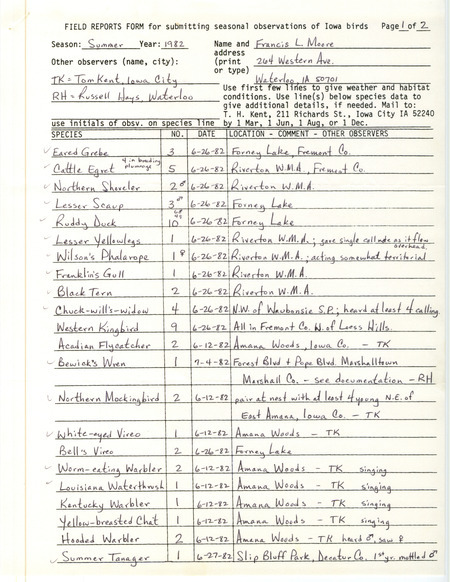 FIELD REPORTS FORM for submitting seasonal observations of Iowa birds Page 1 of 2
Season: Summer Year: 1982 Name and Francis L Moore
Other observers (name, city): address (print or type) 264 Western Ave.
TK = Tom Kent, Iowa City Waterloo, IA 50701
RH = Russell Hays, Waterloo
Use first few lines to give weather and habitat
conditions. Use line(s) below species data to
give additional details, if needed. Mail to:
T. H. Kent, 211 Richards St., Iowa City IA 52240
use initials of obsv. on species line by 1 Mar, 1 Jun, 1 Aug, or 1 Dec.
SPECIES NO. DATE LOCATION - COMMENT - OTHER OBSERVERS
Eared Grebe 3 6-26-82 Forney Lake, Fremont Co.
Cattle Egret 4 in breeding plumage 5 6-26-82 Riverton W.M.A., Fremont Co.
Northern Shoveler 2♂ 6-26-82 Riverton W.M.A.
Lesser Scaup 3♂ 6-26-82 Forney Lake
Ruddy Duck 10 6-26-82 Forney Lake
Lesser Yellowlegs 1 6-26-82 Riverton W.M.A.; gave single call note as it flew overhead.
Wilson's Phalarope 1♀ 6-26-82 Riverton W.M.A.; acting somewhat territorial
Franklin's Gull 1 6-26-82 Riverton W.M.A.
Black Tern 2 6-26-82 Riverton W.M.A.
Chuck-will's-widow 4 6-26-82 N.W. of Waubonsie S.P.; heard at least 4 calling.
Western Kingbird 9 6-26-82 All in Fremont Co. W. of Loess Hills.
Acadian Flycatcher 2 6-12-82 Amana Woods, Iowa Co. - TK
Bewick's Wren 1 7-4-82 Forest Blvd + Pope Blvd. Marshalltown
Marshall Co. - see documentation - RH
Northern Mockingbird 2 6-12-82 pair at nest with at least 4 young N.E. of
East Amana, Iowa Co. - TK
White-eyed Vireo 1 6-12-82 Amana Woods - TK
Bell's Vireo 2 6-26-82 Forney Lake
Worm-eating Warbler 2 6-12-82 Amana Woods - TK singing
Louisiana Waterthrush 1 6-12-82 Amana Woods - TK singing
Kentucky Warbler 1 6-12-82 Amana Woods - TK singing
Yellow-breasted Chat 1 6-12-82 Amana Woods - TK singing
Hooded Warbler 2 6-12-82 Amana Woods - TK heard ♂, saw ♀
Summer Tanager 1 6-27-82 Slip Bluff Park, Decatur Co. 1st yr. mottled ♂